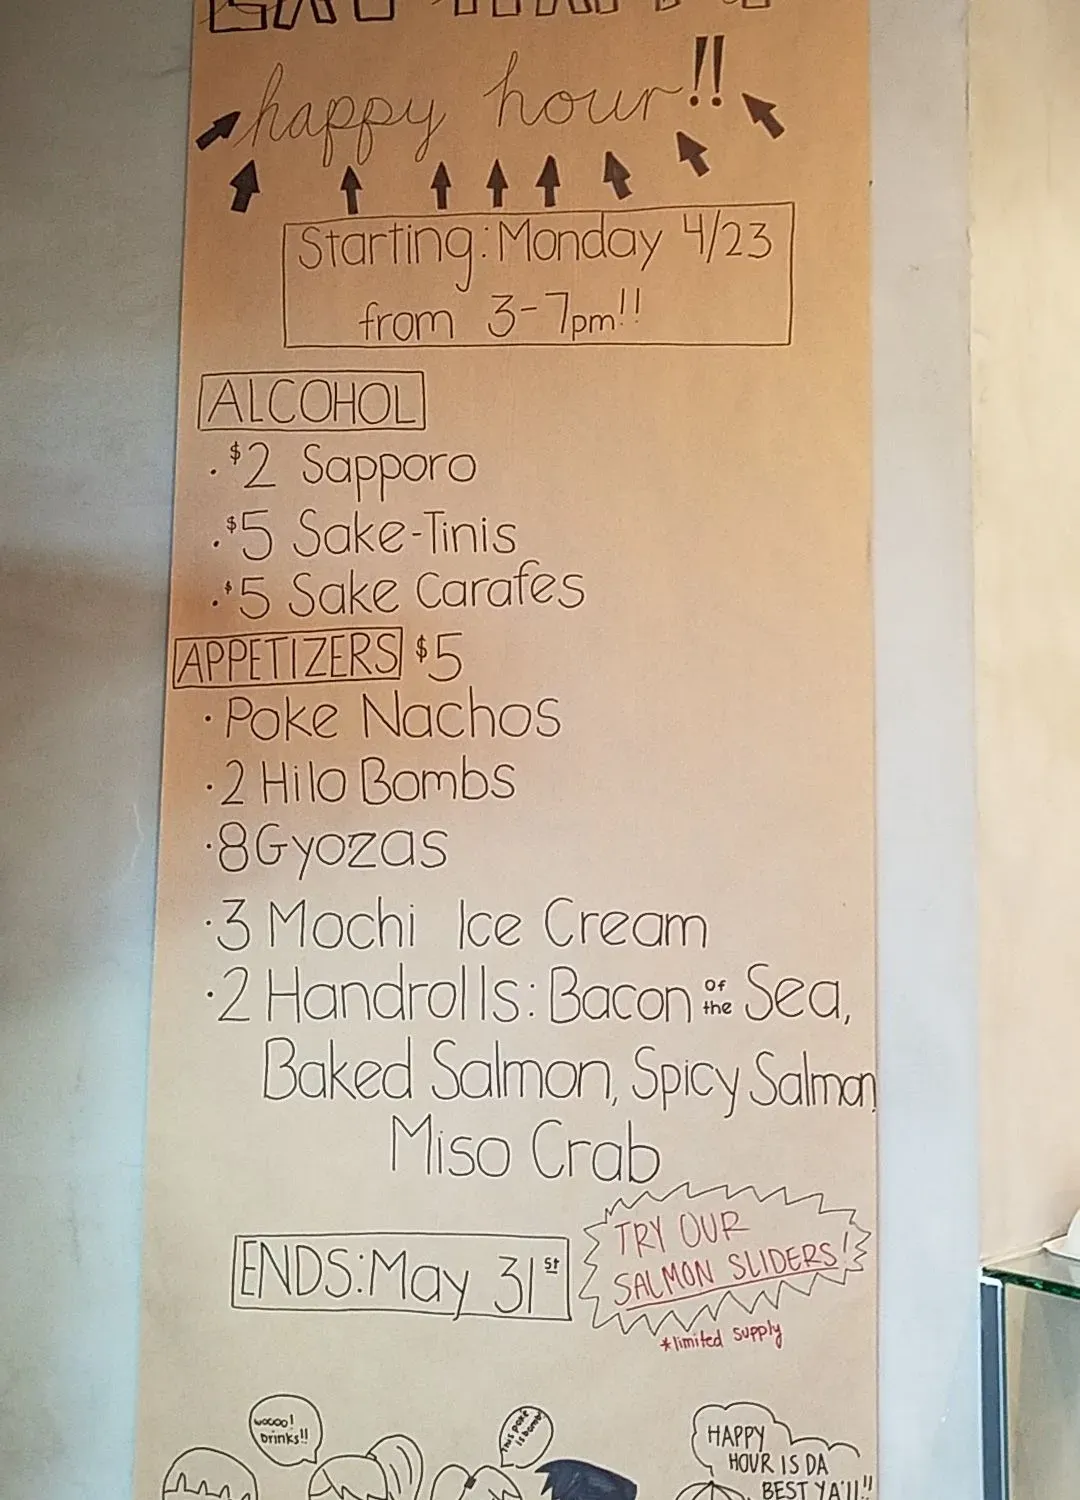 happy hour!!
Starting: Monday 4/23
from 3-7pm!!
ALCOHOL
· $2 Sapporo
· $5 Sake-Tinis
· $5 Sake Carafes
APPETIZERS $5
· Poke Nachos
· 2 Hilo Bombs
· 8 Gyozas
· 3 Mochi Ice Cream
· 2 Handrolls: Bacon of the Sea,
Baked Salmon, Spicy Salmon,
Miso Crab
ENDS: May 31st
TRY OUR
SALMON SLIDERS!
*limited supply
woooo!
Drinks!!
This poke
is bomb!
HAPPY
HOUR IS DA
BEST YA'll!!